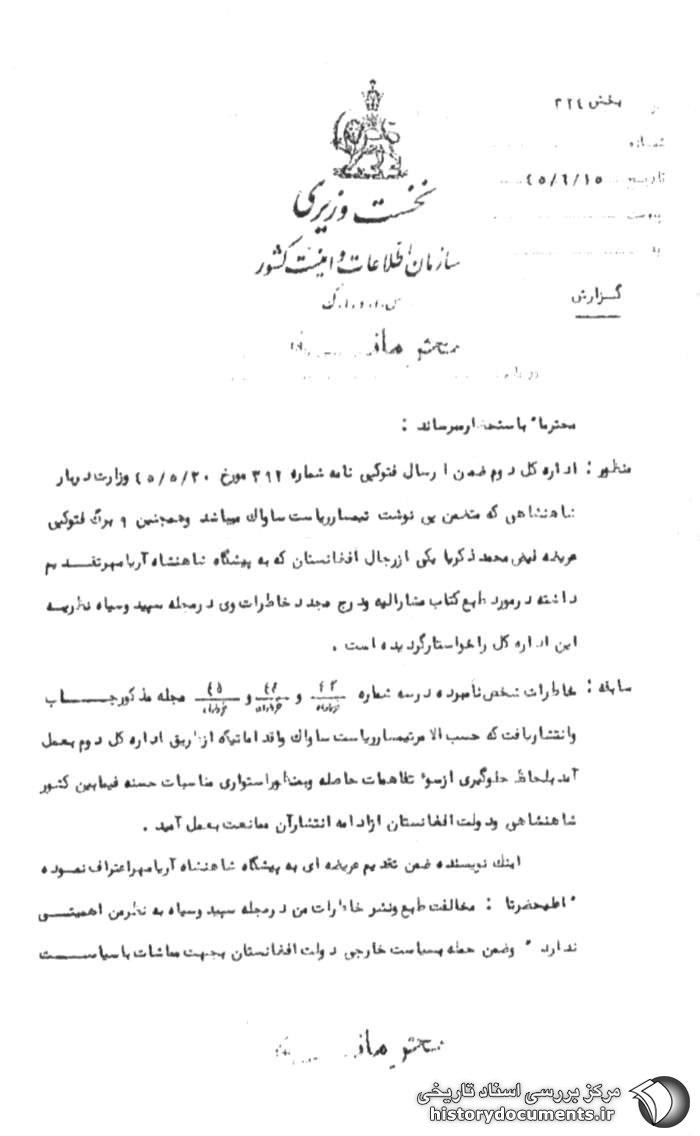 بخش ۳۲٤
شماره
تاریخ ٤٥/٦/١٥
پیوست
به
گزارش
نخست وزیری
سازمان اطلاعات و امنیت کشور
س.ا.و.ا.ک
محترماً باستحضار میرساند :
منظور : اداره کل دوم ضمن ارسال فتوکپی نامه شماره ۳۹۲ مورخ ٤٥/٥/۳۰ وزارت دربار
شاهنشاهی که متضمن پی نوشت تیمسار ریاست ساواک میباشد و همچنین ۹ برگ فتوکپی
عریضه فیض محمد ذکریا یکی از رجال افغانستان که به پیشگاه شاهنشاه آریامهر تقدیم
داشته در مورد طبع کتاب مشارالیه و درج مجدد خاطرات وی در مجله سپید و سیاه نظریه
این اداره کل را خواستار گردیده است .
سابقه : خاطرات شخص نامبرده در سه شماره و و مجله مذکور چاپ
و انتشار یافت که حسب الامر تیمسار ریاست ساواک و اقداماتیکه از طریق اداره کل دوم بعمل
آمد بلحاظ جلوگیری از سوء تفاهمات حاصله و بمنظور استواری مناسبات حسنه فیمابین کشور
شاهنشاهی و دولت افغانستان از ادامه انتشار آن ممانعت بعمل آمد .
اینک نویسنده ضمن تقدیم عریضه ای به پیشگاه شاهنشاه آریامهر اعتراف نموده
" اعلیحضرتا : مخالفت طبع و نشر خاطرات من در مجله سپید و سیاه به نظر من اهمیتی
ندارد " و ضمن حمله بسیاست خارجی دولت افغانستان بجهت مماشات با سیاست
مرکز بررسی اسناد تاریخی
historydocuments.ir